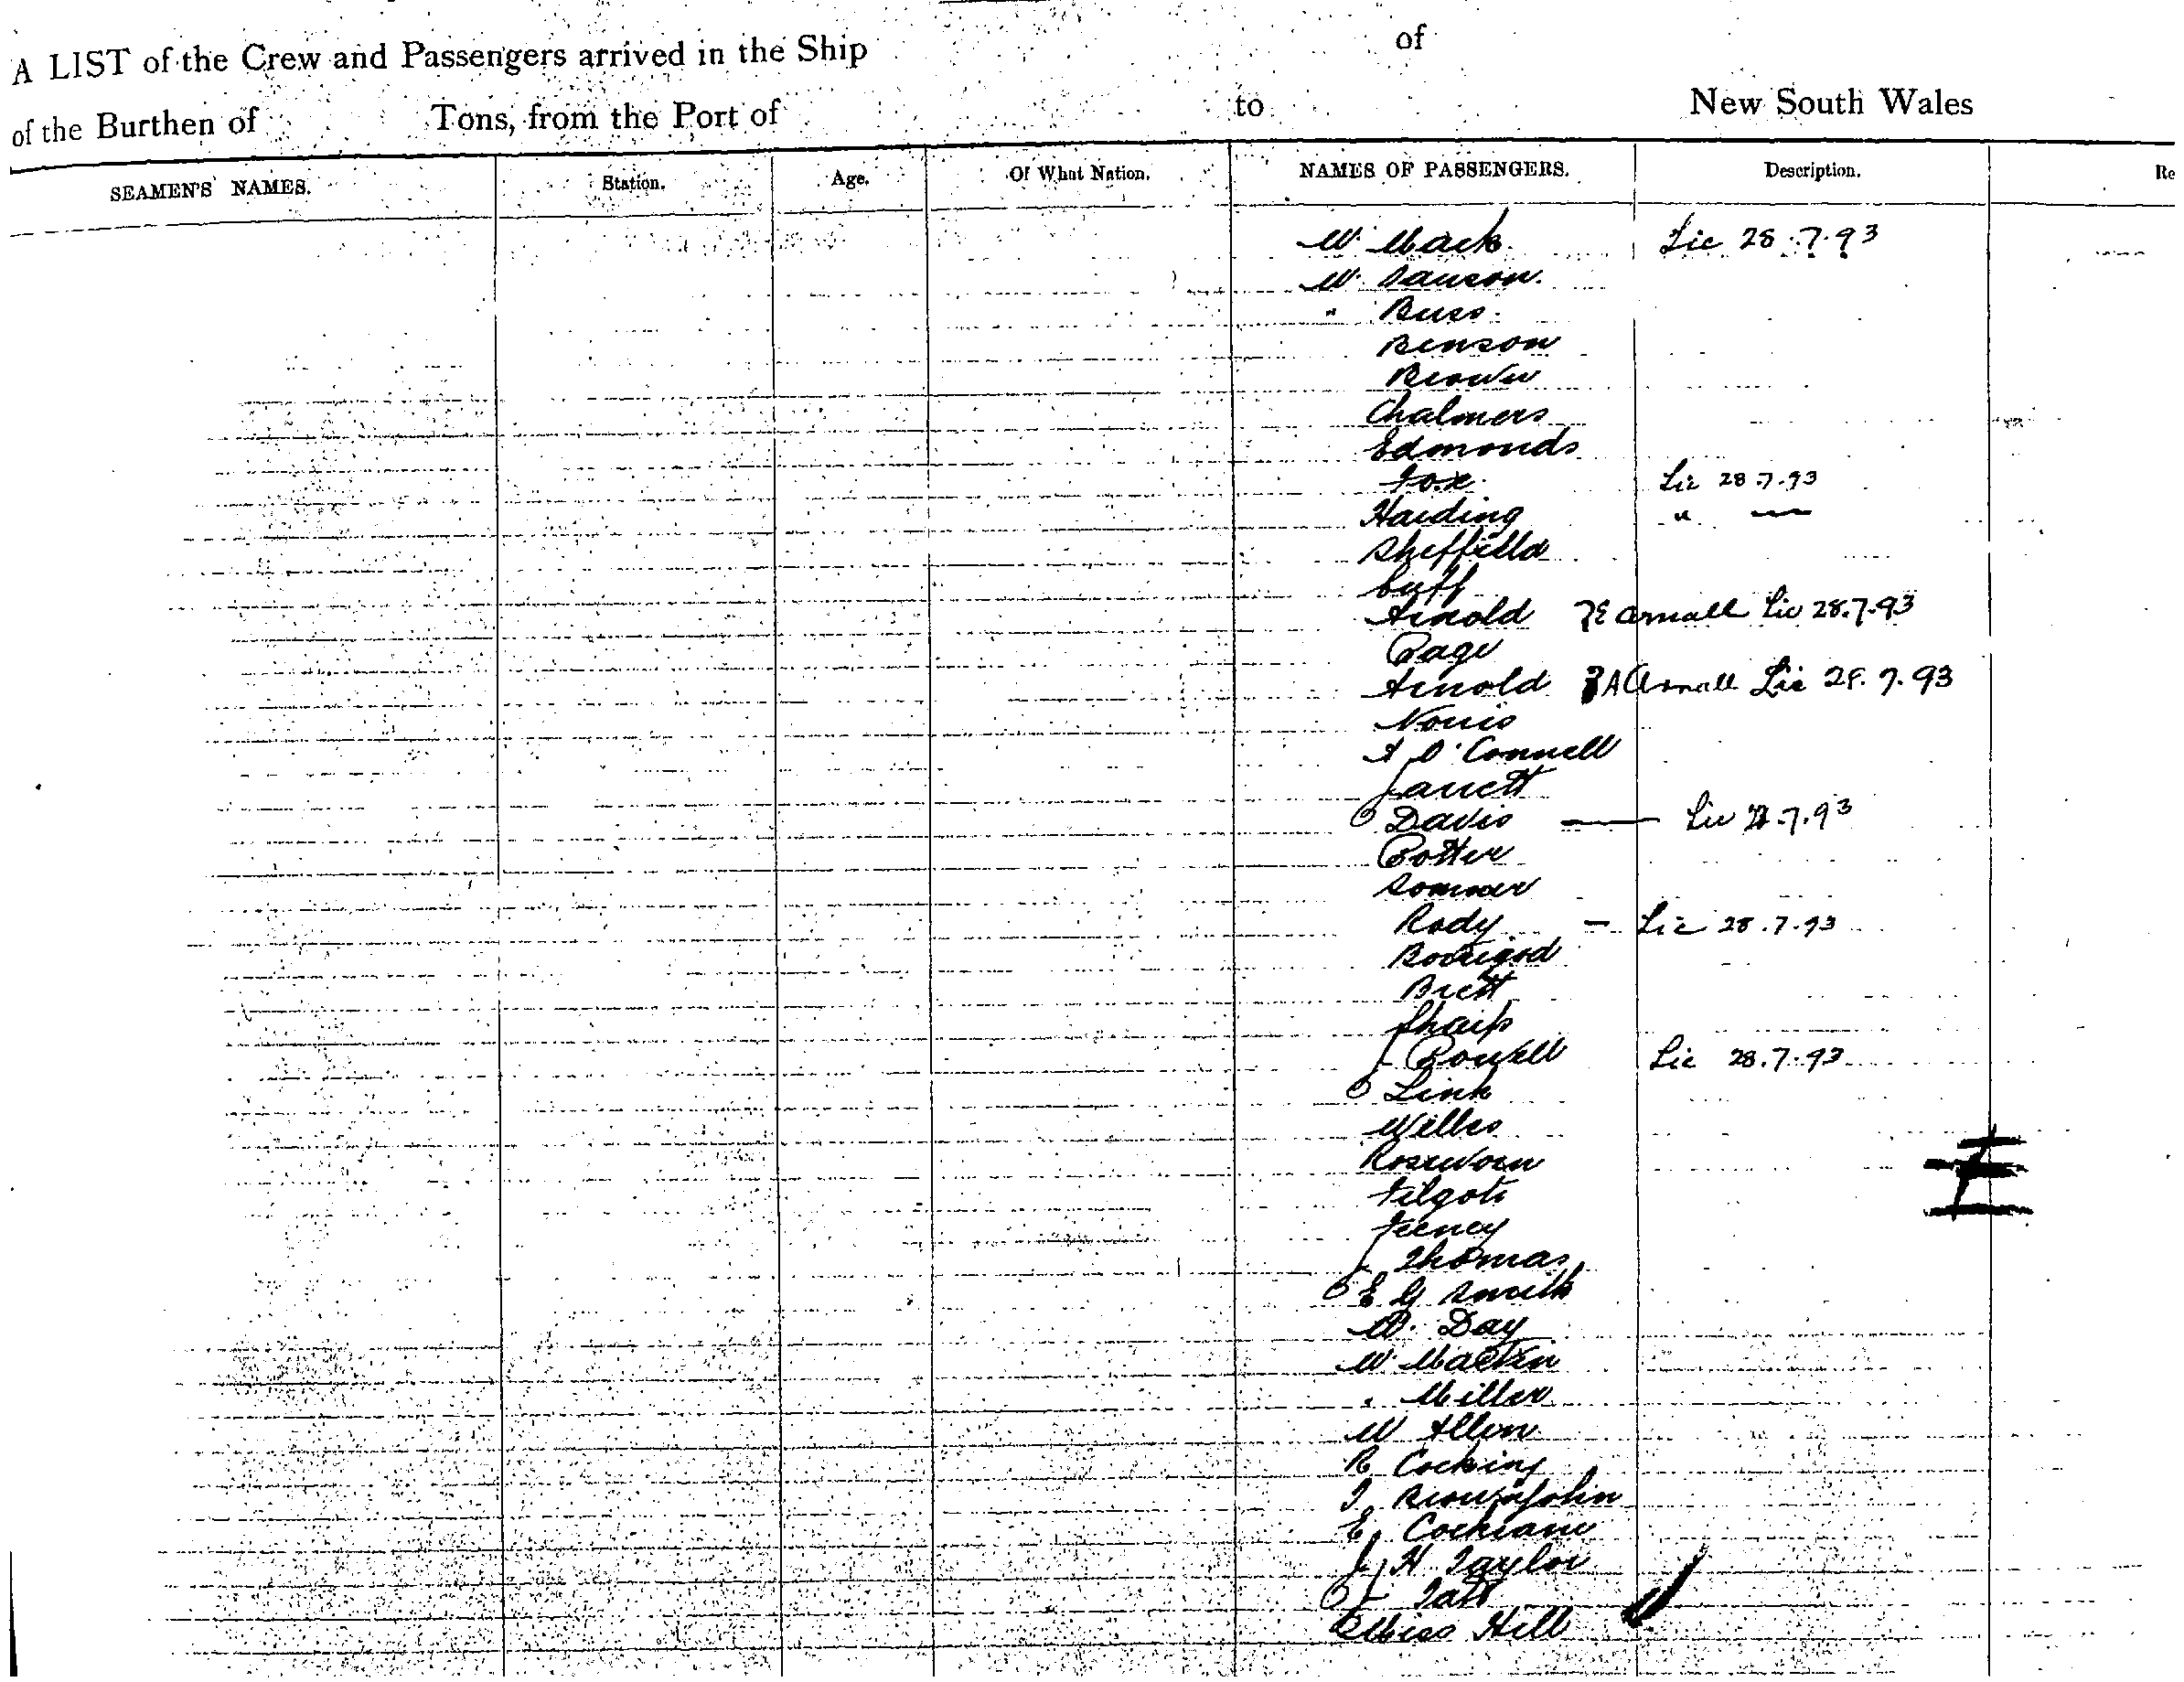 A LIST of the Crew and Passengers arrived in the Ship of
of the Burthen of Tons, from the Port of to New South Wales
SEAMEN'S NAMES. Station. Age. Of What Nation. NAMES OF PASSENGERS. Description. Re
W. Mack. Lic 28.7.93
W. Dawson.
" Buss.
Benson
Brown
Chalmers
Edmonds
Fox. Lic 28.7.93
Harding " —
Sheffield
Cuff
Arnold ?E Arnall Lic 28.7.93
Page
Arnold ?A Arnall Lic 28.7.93
Norris
A O'Connell
Jarrett
Davis — Lic 7.93
Potter
Sommer
Rody — Lic 28.7.93
Brett
Sharp
J Powell Lic 28.7.93
Link
Willis
Rosewarn
Feeney
J Thomas
E G Smith
W. Day
W. Martin
" Miller
W Allen
R Cocking
J Brownjohn
E. Cochrane
J H Taylor
J Tait
Miss Hill